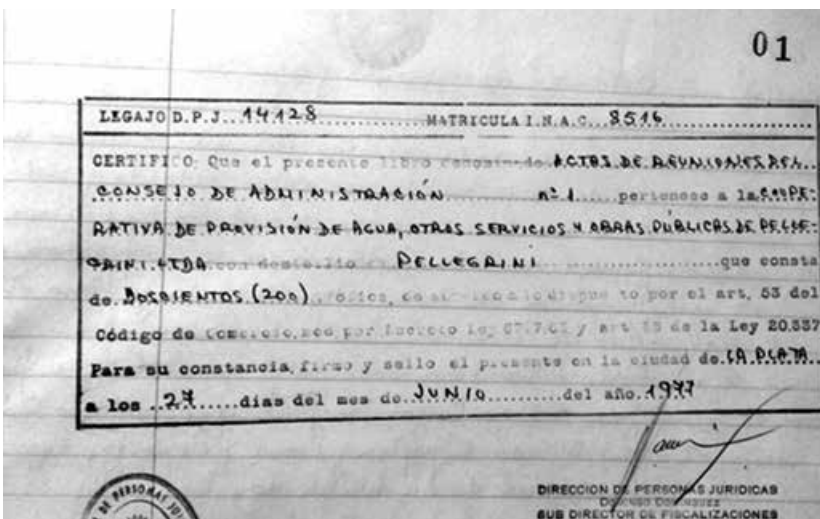 01
LEGAJO D.P.J. 14128 MATRICULA I.N.A.C. 8516
CERTIFICO Que el presente libro denominado ACTAS DE REUNIONES DEL
CONSEJO DE ADMINISTRACIÓN nº 1 pertenece a la COOPE-
RATIVA DE PROVISIÓN DE AGUA, OTROS SERVICIOS Y OBRAS PÚBLICAS DE PELLE-
GRINI LTDA con domicilio PELLEGRINI que consta
de DOSCIENTOS (200) folios, de lo dispuesto por el art, 53 del
Código de Comercio, por Decreto Ley y art de la Ley 20.337
Para su constancia, firmo y sello el presente en la ciudad de LA PLATA
a los 27 días del mes de JUNIO del año 1977
DIRECCION DE PERSONAS JURIDICAS
SUB DIRECTOR DE FISCALIZACIONES
DE PERSONAS